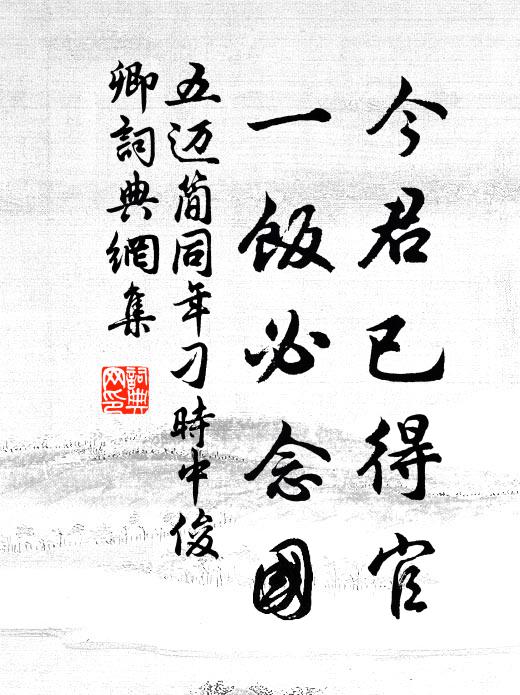 今君已得官
一飯必念國
五迈简同年刁時中俊
卿詞典網集
詞典
网印